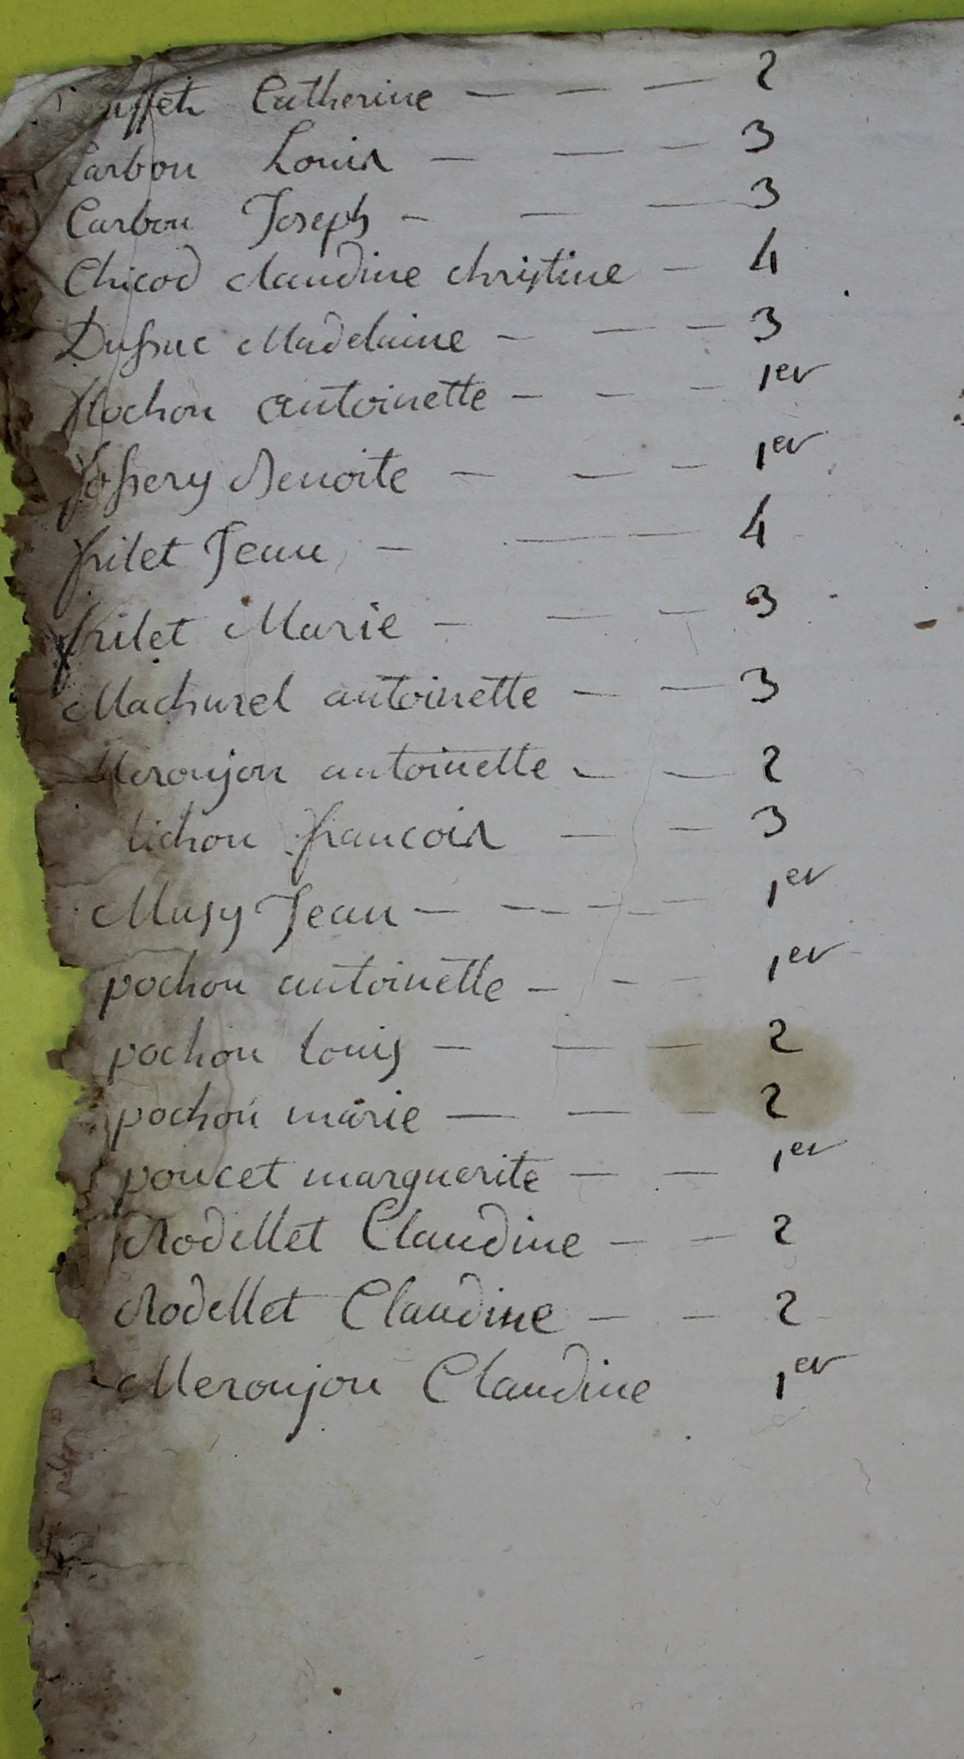 Catherine — — — 2
Carbon Louis — — — 3
Carbon Joseph — — — 3
Chicod claudine christine — 4
Dussuc Madelaine — — — 3
antoinette — — — 1er
Jossery Benoite — — — 1er
frilet Jean — — 4
frilet Marie — — — 3
Machurel antoinette — — 3
Meroujon antoinette — — 2
francois — — 3
Musy Jean — — — — 1er
pochon antoinette — — — 1er
pochon louis — — — 2
pochon marie — — — 2
poncet marguerite — — 1er
Rodellet Claudine — — 2
Rodellet Claudine — — 2
Meroujon Claudine 1er